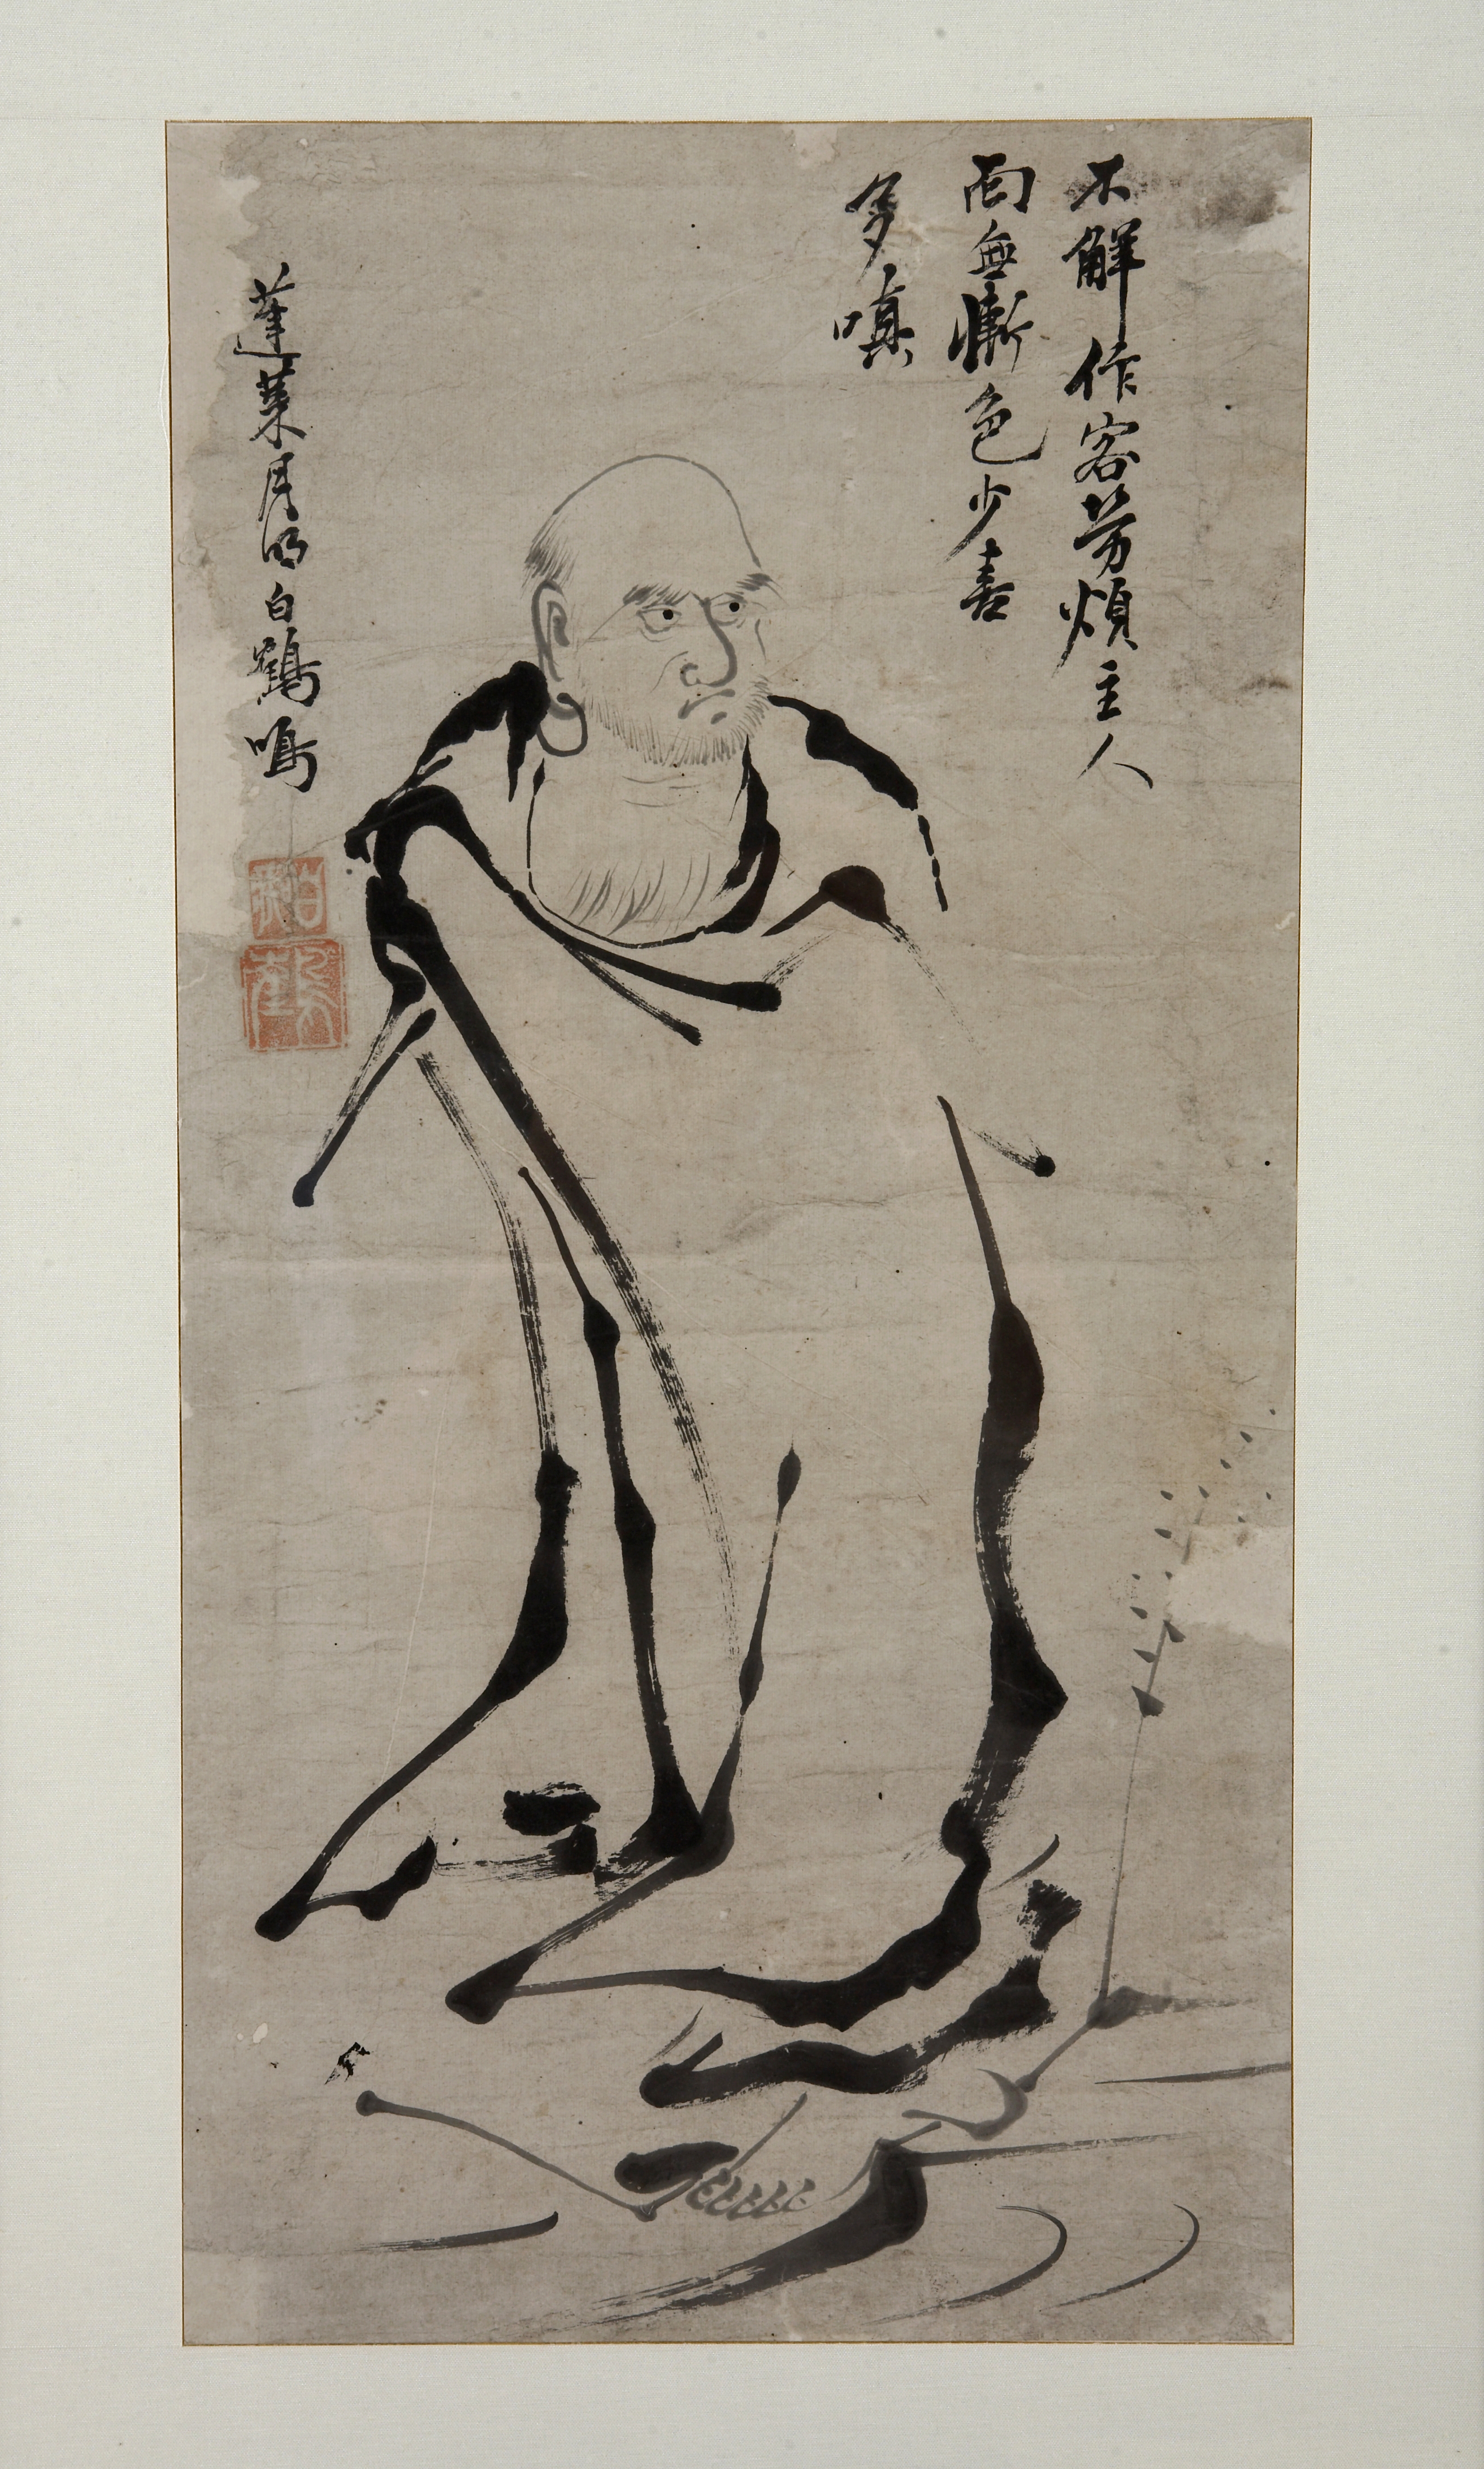 不解作客劳煩主人
面無慚色少喜
多嗔
蓬莱月明白鶴鳴